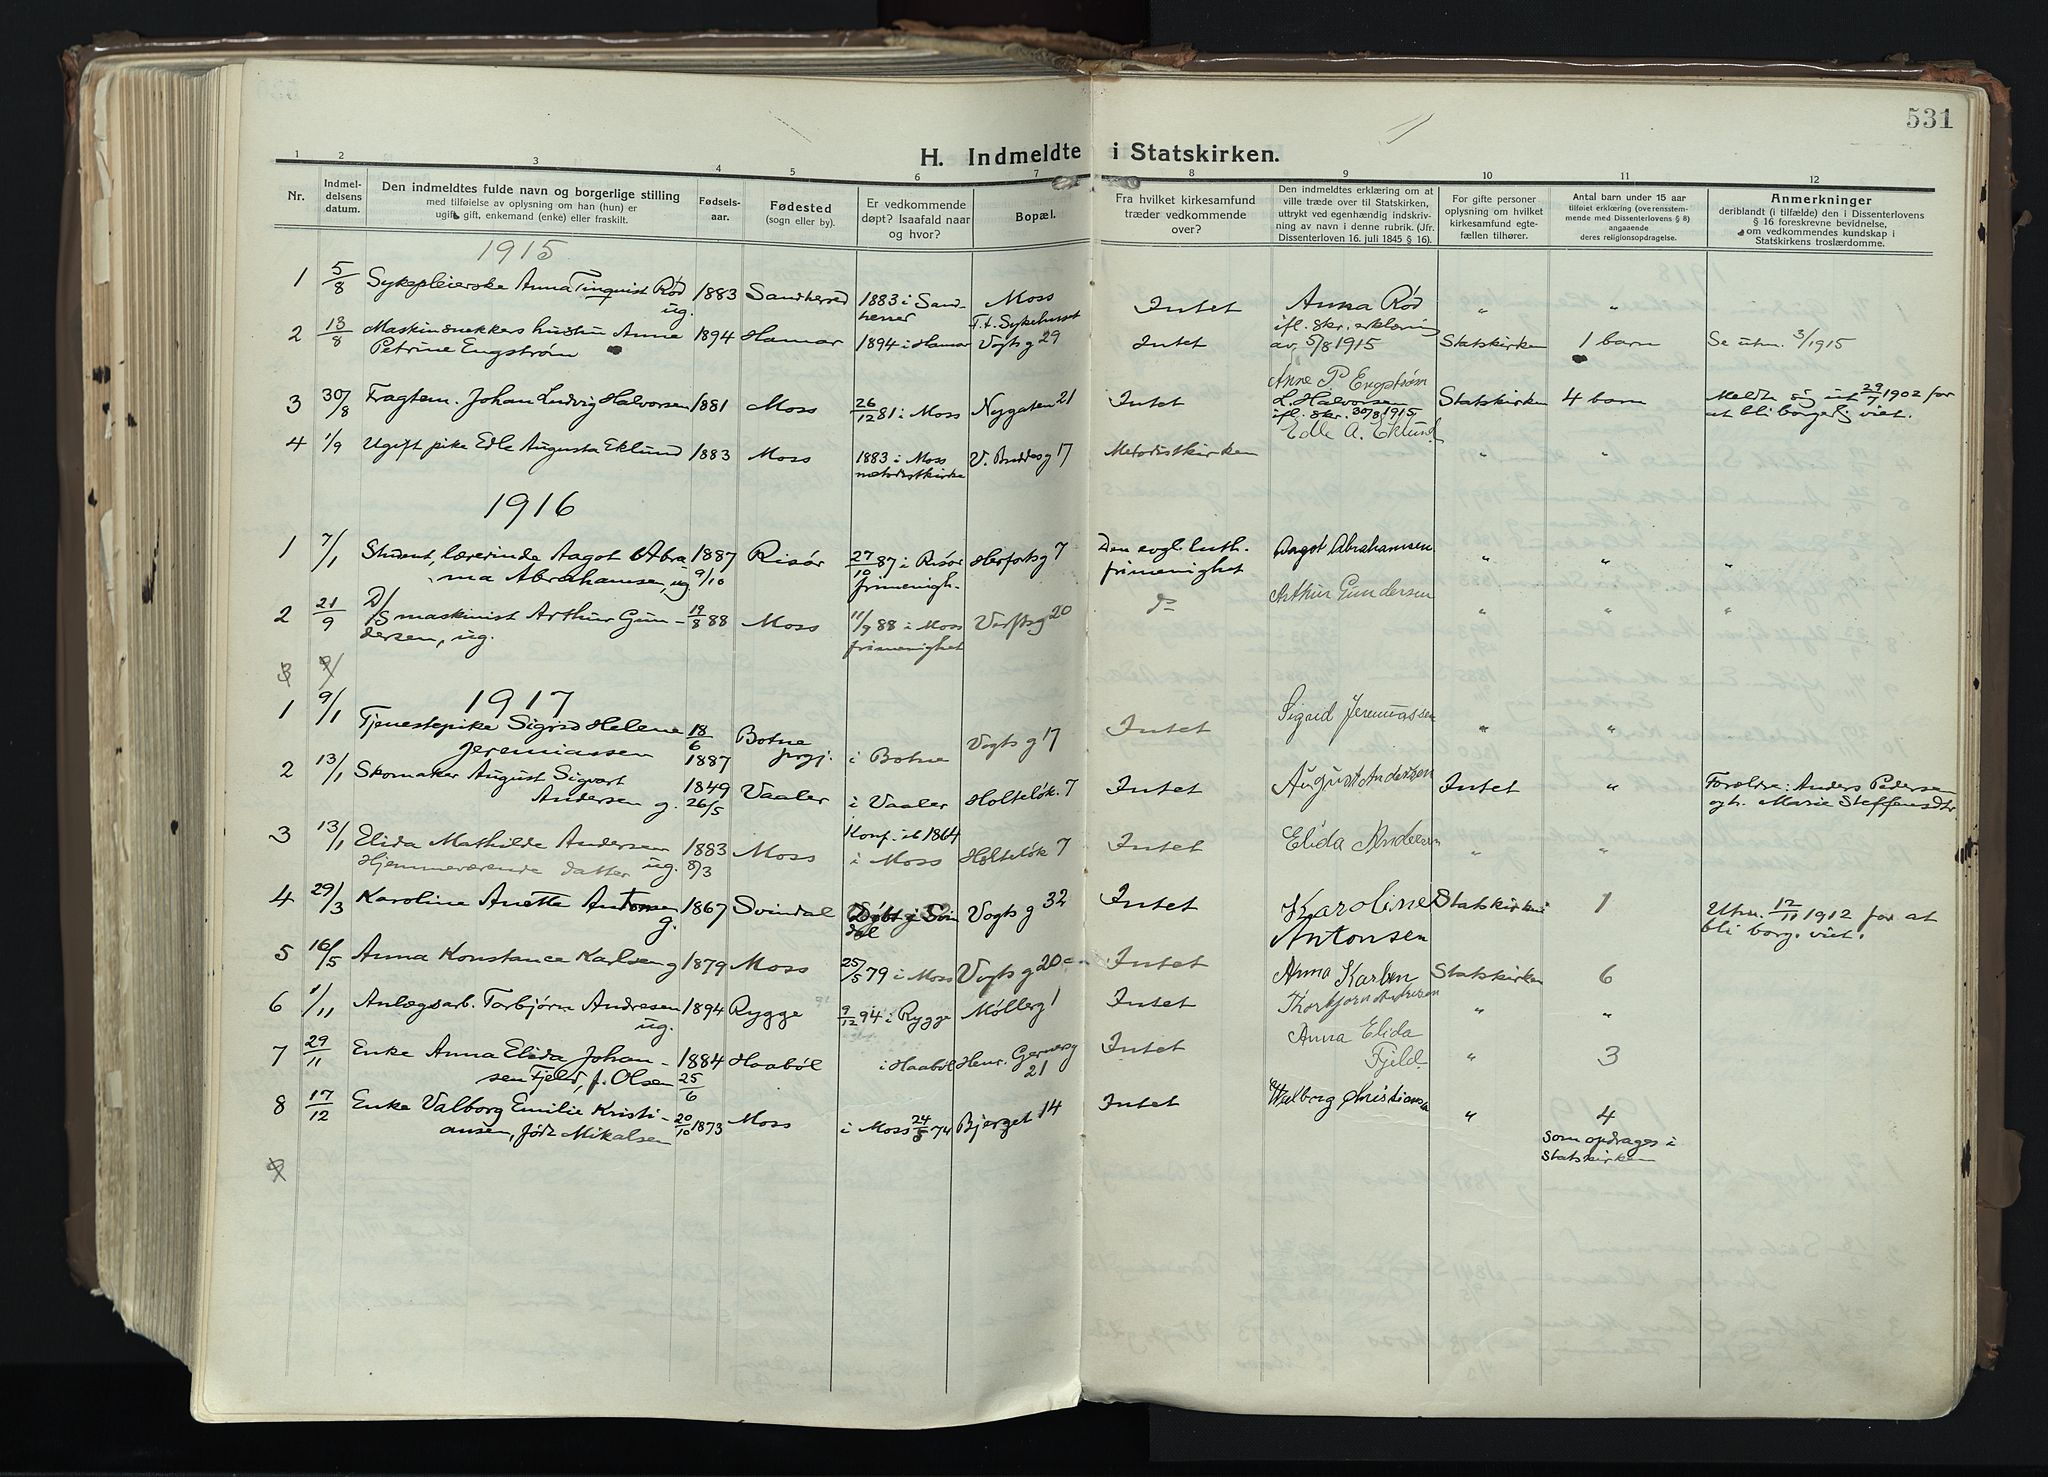 531
H. Indmeldte i Statskirken.
1 2 3 4 5 6 7 8 9 10 11 12
Nr.
Indmeldelsens datum.
Den indmeldtes fulde navn og borgerlige stilling
med tilføielse av oplysning om han (hun) er
ugift, gift, enkemand (enke) eller fraskilt.
Fødselsaar.
Fødested
(sogn eller by).
Er vedkommende
døpt? Isaafald naar
og hvor?
Bopæl.
Fra hvilket kirkesamfund
træder vedkommende
over?
Den indmeldtes erklæring om at
ville træde over til Statskirken,
uttrykt ved egenhændig indskrivning av navn i denne rubrik. (Jfr.
Dissenterloven 16. juli 1845 § 16).
For gifte personer
oplysning om hvilket
kirkesamfund egtefællen tilhører.
Antal barn under 15 aar
tilføiet erklæring (overensstemmende med Dissenterlovens § 8)
angaaende
deres religionsopdragelse.
Anmerkninger
deriblandt (i tilfælde) den i Dissenterlovens
§ 16 foreskrevne bevidnelse,
om vedkommendes kundskap i
Statskirkens troslærdomme.
1915
1 5/8 Sykepleierske Anna Tinquist Rød ug. 1883 Sandherred 1883 i Sandherred Moss F.t. Sykehuset Intet Anna Rød ifl. skr. erklæring av 5/8 1915 " "
2 13/8 Maskinsnekkers hustru Anna Petrine Engstrøm 1894 Hamar 1894 i Hamar Vogts g 29 Intet Anne P Engstrøm Statskirken 1 barn Se utm. 3/1915
3 30/8 Fragtem. Johan Ludvig Halvorsen 1881 Moss 26/12 81 i Moss Nygaten 21 Intet L. Halvorsen ifl. skr. 30/8 1915 Statskirken 4 barn Meldte sig ut 29/7 1902 for at bli borgerlig viet.
4 1/9 Ugift pike Edle Augusta Eklund 1883 Moss 1883 i Moss metodistkirke V. Buddes g 17 Metodistkirken Edle A. Eklund " "
1916
1 7/1 Student, lærerinde Aagot Abrama Abrahamsen, ug. 1887 9/10 Risør 27/10 87 i Risør frimenigh. Herfordts g 7 Den evgl. luth. frimenighet Aagot Abrahamsen " " "
2 21/9 D/S maskinist Arthur Gundersen, ug. 19/8 88 Moss 11/9 88 i Moss frimenighet Verfts g 20 do Arthur Gundersen " " "
3
1917
1 9/1 Tjenestepike Sigrid Helene Jeremiassen 18/6 1887 Botne prgj. i Botne Vogts g 17 Intet Sigrid Jeremiassen " "
2 13/1 Skomaker August Sigvart Andersen g. 1849 26/5 Vaaler i Vaaler Konf. i 1864 Holteløk. 7 Intet August Andersen Intet " Forældre: Anders Pedersen og h. Marie Steffensdtr.
3 13/1 Elida Mathilde Andersen ug. Hjemmeværende datter 1883 8/3 Moss i Moss Holteløk 7 Intet Elida Andersen " "
4 29/3 Karoline Anette Antonsen g. 1867 Svindal Døbt i Svindal Vogts g 32 Intet Karoline Antonsen Statskirken 1 Utm. 12/11 1912 for at bli borg. viet.
5 16/5 Anna Konstance Karlsen g 1879 Moss 25/5 79 i Moss Vogts g 20 Intet Anna Karlsen Statskirken 6
6 1/11 Anlægsarb. Torbjørn Andresen ug. 1894 Rygge 9/12 94 i Rygge Møllerg 1 Intet Thorbjørn Andresen " "
7 29/11 Enke Anna Elida Johansen Fjeld, f. Olsen 1884 25/6 Haabøl i Haabøl Henr. Gerners g 21 Intet Anna Elida Fjeld " 3
8 17/12 Enke Valborg Emilie Kristiansen, født Mikalsen 20/10 1873 Moss i Moss 24/5 74 Bjerget 14 Intet Walborg Christiansen " 4 som opdrages i Statskirken
9